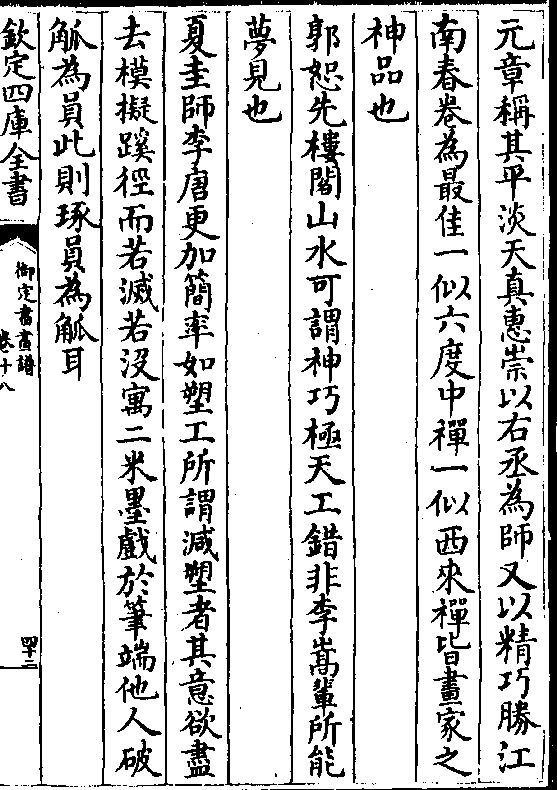 元章稱其平淡天真惠崇以右丞為師又以精巧勝江
南春卷為最佳一似六度中禪一似西來禪皆畫家之
神品也
郭恕先樓閣山水可謂神巧極天工錯非李嵩輩所能
夢見也
夏圭師李唐更加簡率如塑工所謂減塑者其意欲盡
去模擬蹊徑而若滅若沒寓二米墨戲於筆端他人破
觚為員此則琢員為觚耳
欽定四庫全書
御定書畫譜
卷十八
四十二